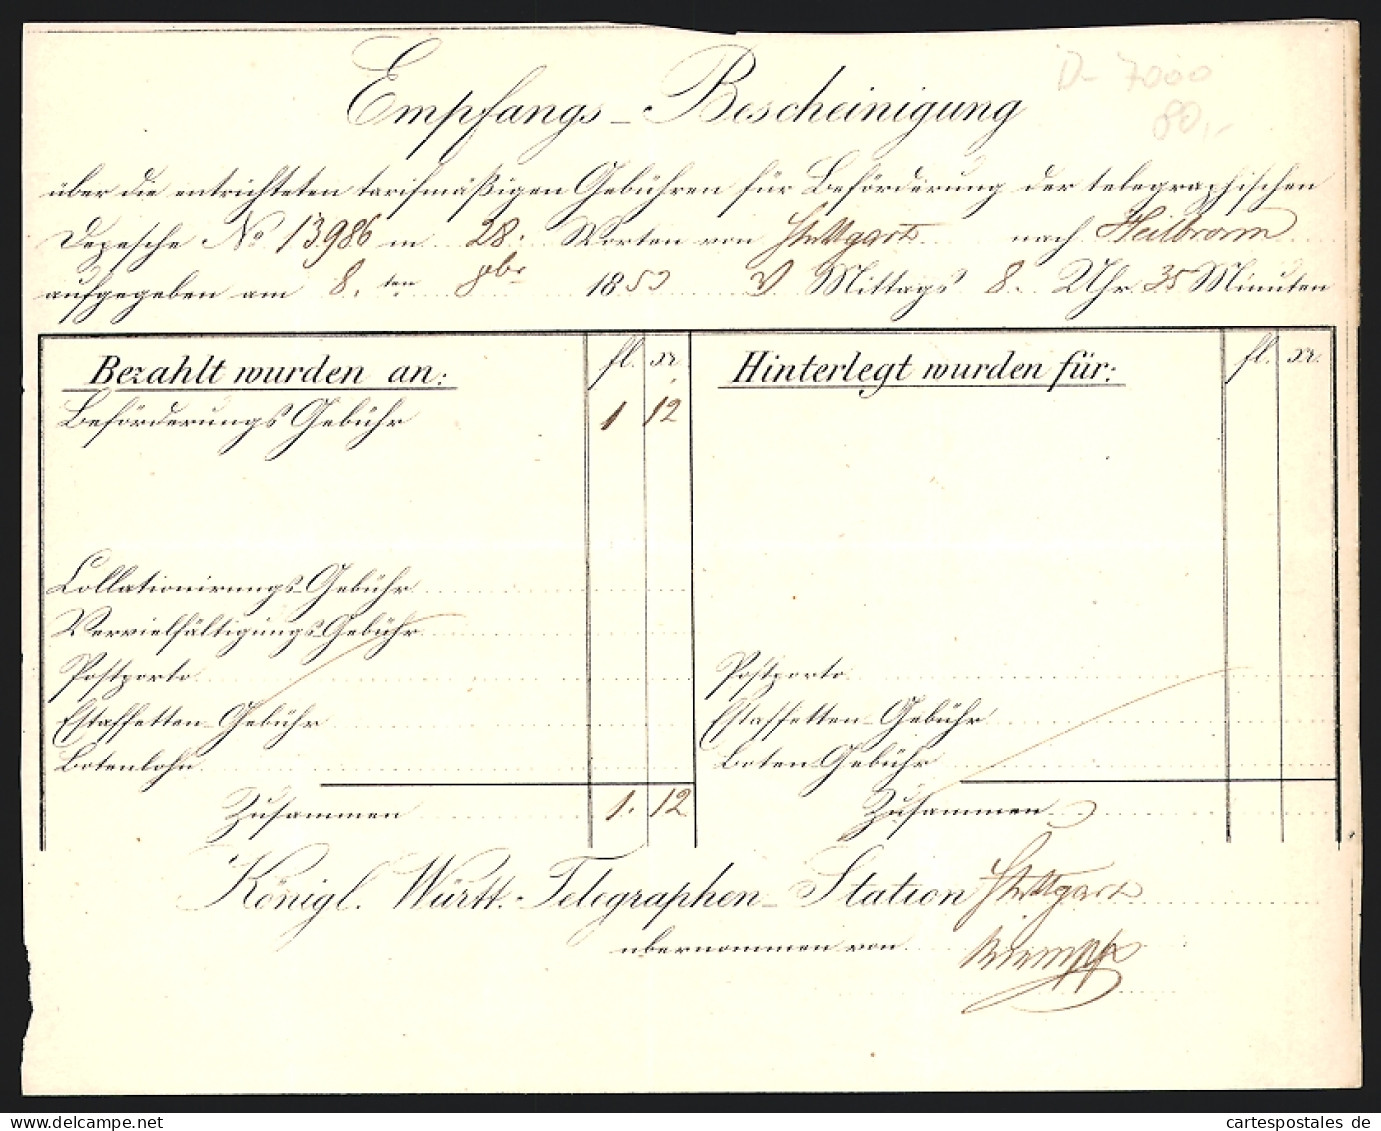 D- 7000
80,-
Empfangs-Bescheinigung
über die entrichteten tarifmäßigen Gebühren für Beförderung der telegraphischen
Depesche No 13986 in 28. Worten von Stuttgart nach Heilbronn
aufgegeben am 8. ten 8br 1853 V Mittags 8. Uhr 35 Minuten
Bezahlt wurden an: fl. xr.
Beförderungs Gebühr 1 12
Collationirungs-Gebühr
Vervielfältigungs-Gebühr
Postporto
Estaffetten-Gebühr
Botenlohn
Zusammen 1. 12
Hinterlegt wurden für: fl. xr.
Postporto
Estaffetten-Gebühr
Boten Gebühr
Zusammen
Königl. Württ. Telegraphen-Station Stuttgart
übernommen von
cartespostales.de